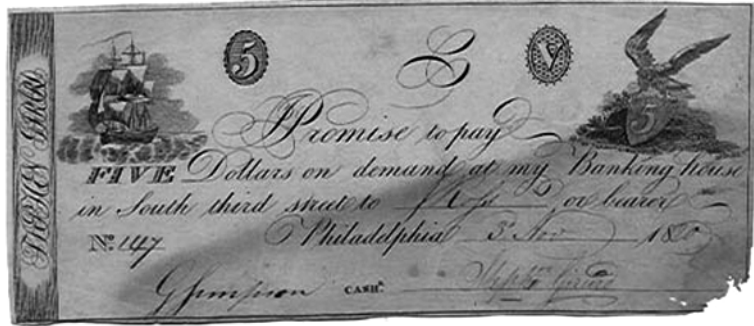 5 V
I Promise to pay
5
FIVE Dollars on demand at my Banking house
in South third street to or bearer
No. 147 Philadelphia 3 Nov 18
G Simpson CASHR. Stepn Girard